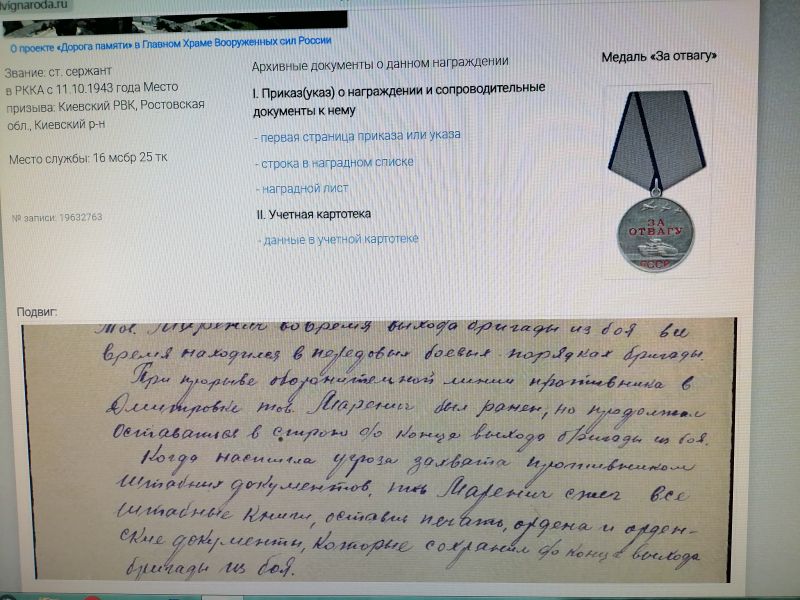 vignaroda.ru
О проекте «Дорога памяти» в Главном Храме Вооруженных сил России
Звание: ст. сержант
в РККА с 11.10.1943 года Место
призыва: Киевский РВК, Ростовская
обл., Киевский р-н
Место службы: 16 мсбр 25 тк
№ записи: 19632763
Архивные документы о данном награждении
I. Приказ(указ) о награждении и сопроводительные
документы к нему
- первая страница приказа или указа
- строка в наградном списке
- наградной лист
II. Учетная картотека
- данные в учетной картотеке
Медаль «За отвагу»
ЗА
ОТВАГУ
СССР
Подвиг:
Тов. Маренич вовремя выхода бригады из боя все
время находился в передовых боевых порядках бригады.
При прорыве оборонительной линии противника в
Дмитровке тов. Маренич был ранен, но продолжал
оставаться в строю до конца выхода бригады из боя.
Когда наступила угроза захвата противником
штабных документов, тов. Маренич сжег все
штабные книги, оставив печать, ордена и орден-
ские документы, которые сохранил до конца выхода
бригады из боя.